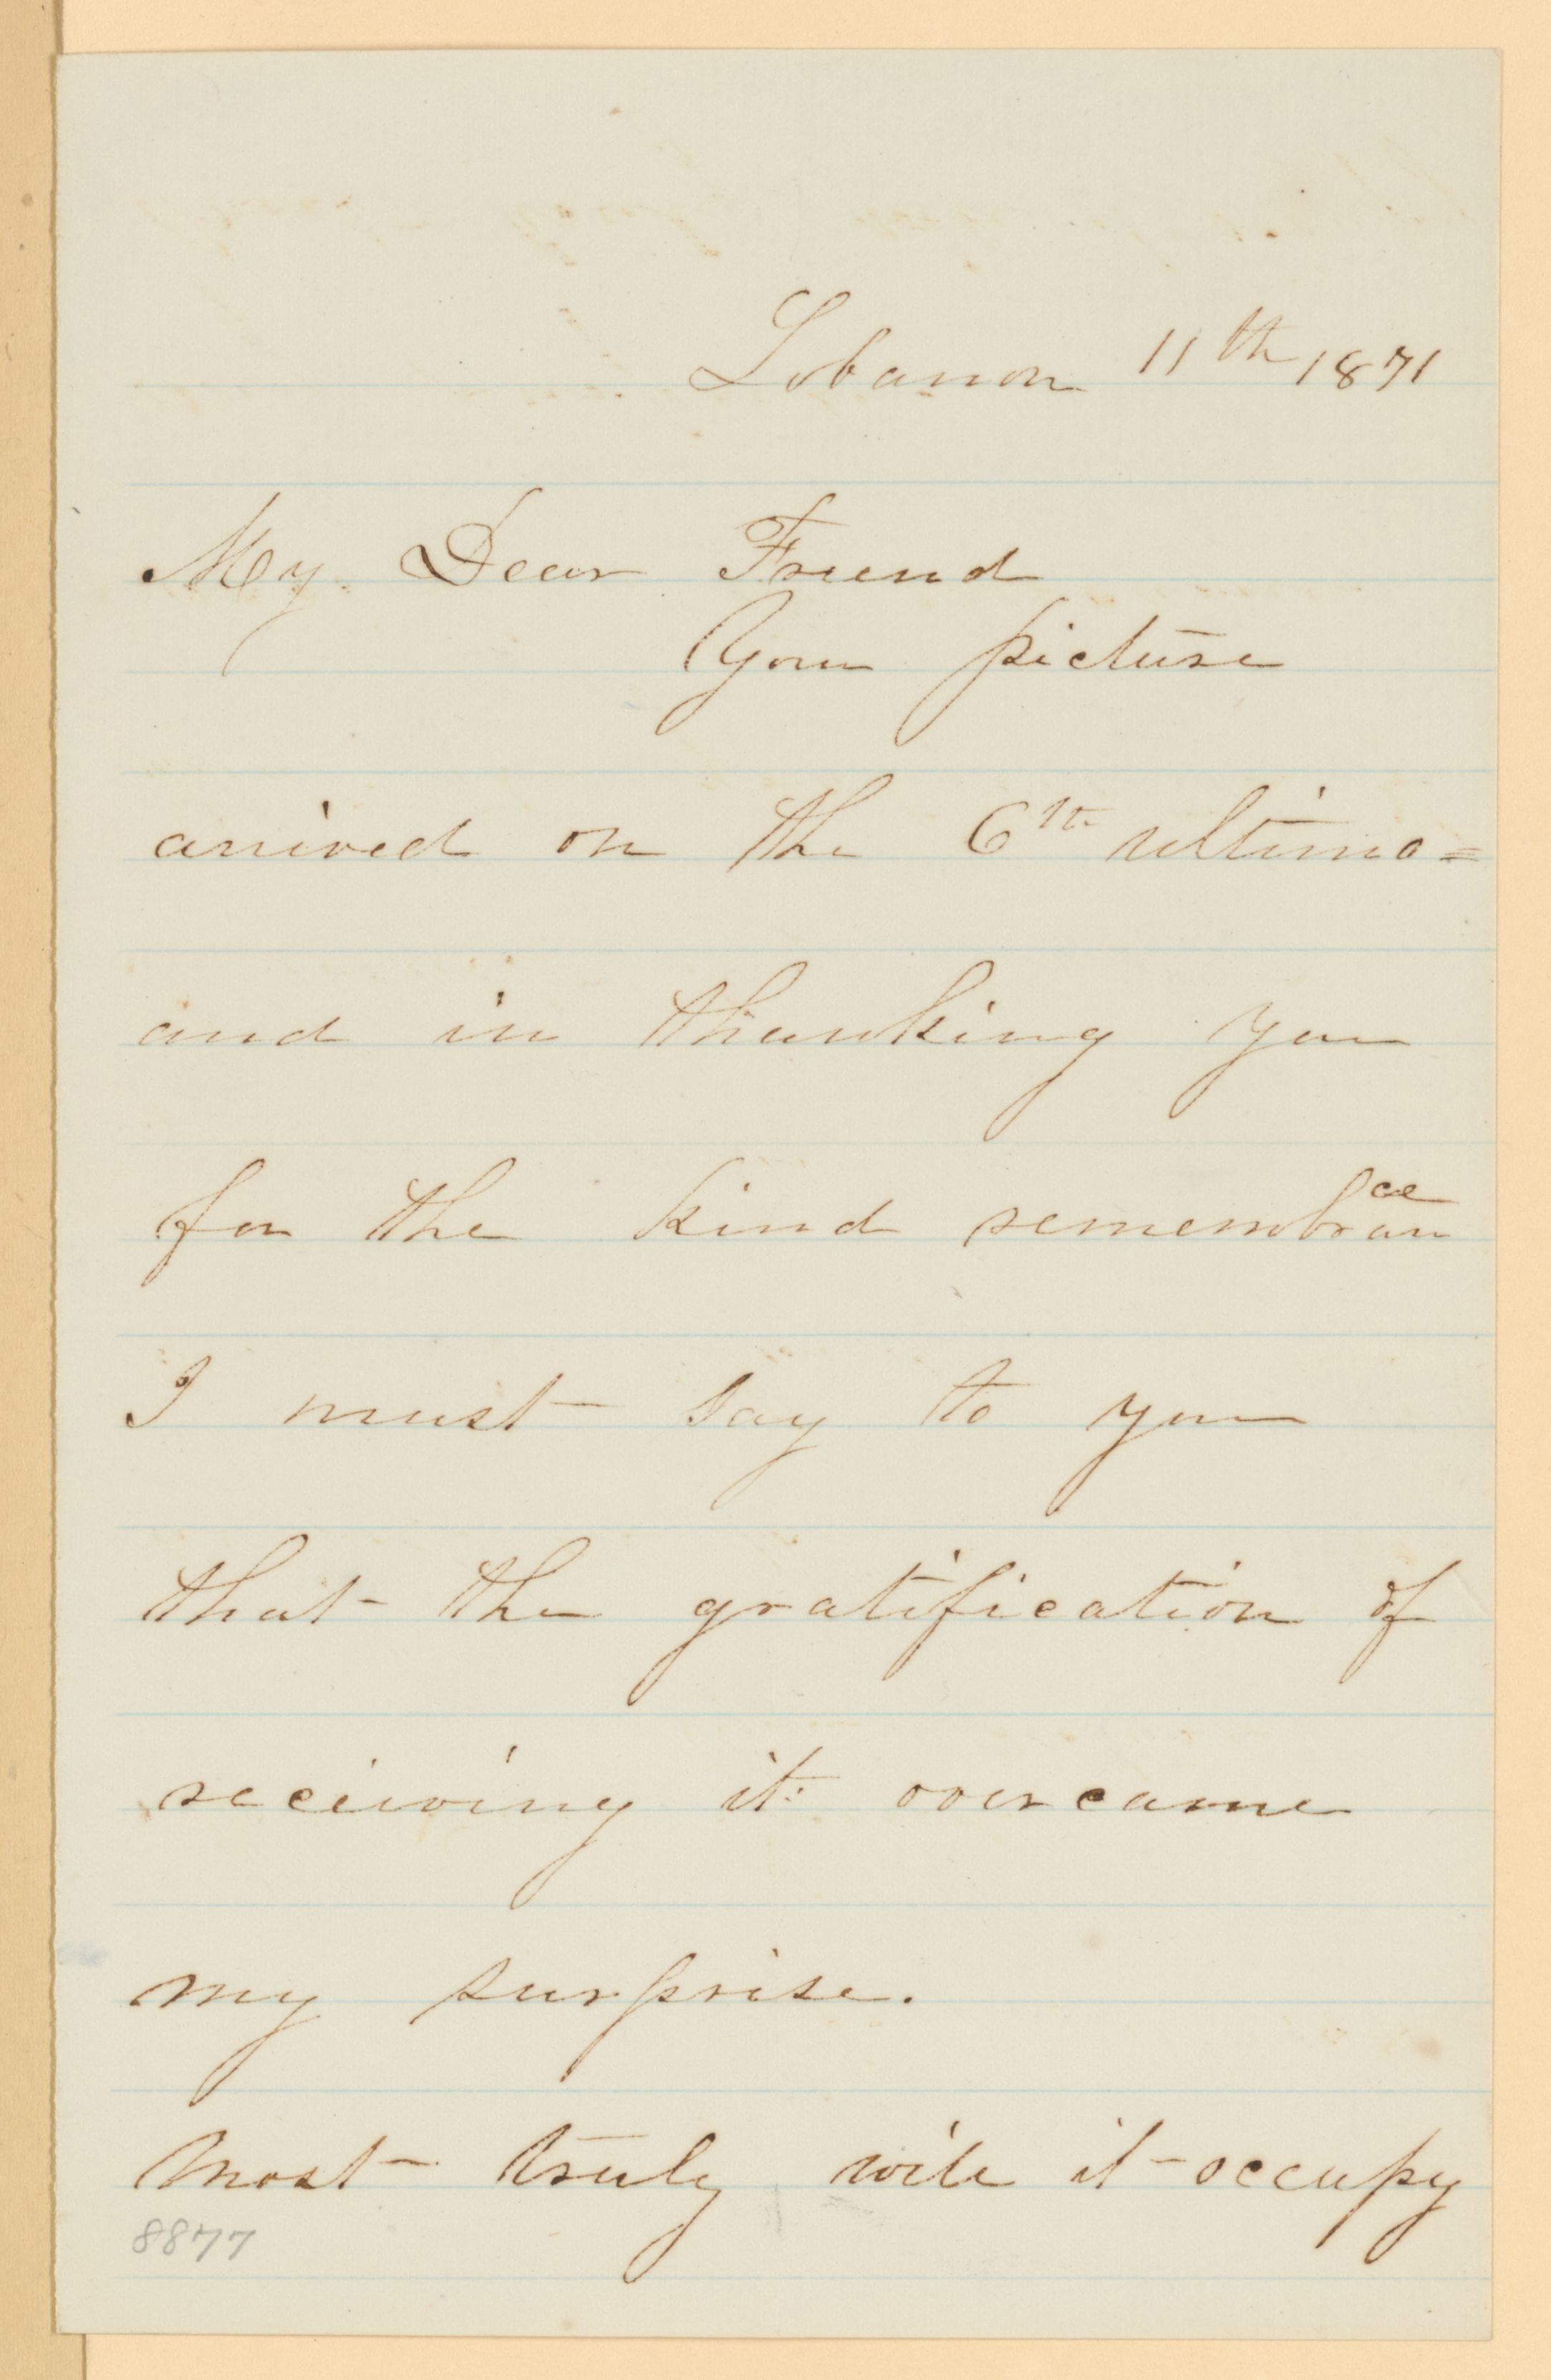 Lebanon 11th 1871
My Dear Friend
Your picture
arrived on the 6th ultimo=
and in thanking you
for the kind remembrance
I must say to you
that the gratification of
receiving it: overcame
my surprise.
Most truly will it occupy
8877